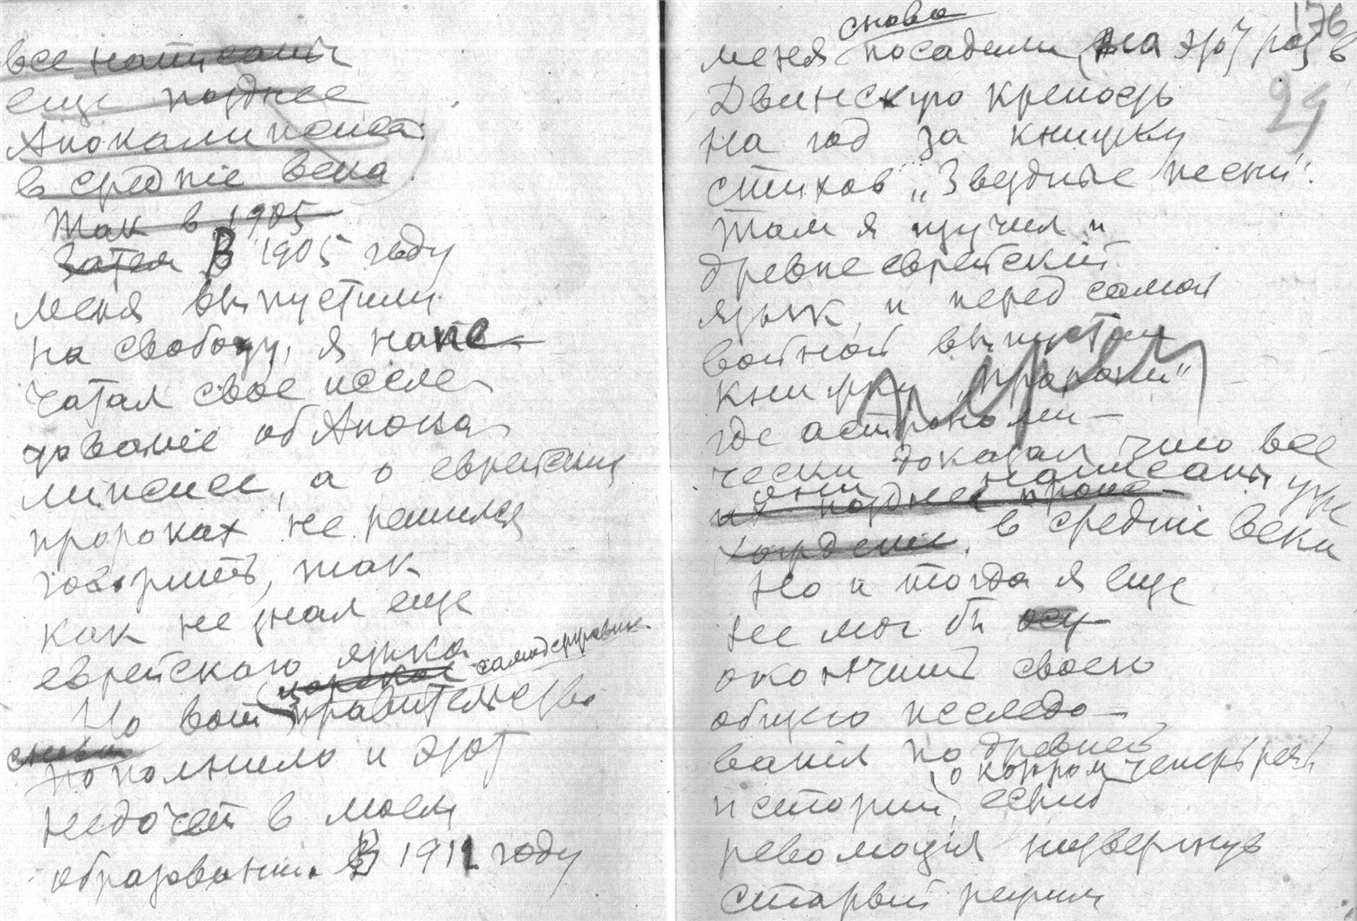 все написаны
еще позднее
Апокалипсиса
в средніе века
Так в 1905
Затем В 1905 году
меня выпустили
на свободу, я напе-
чатал свое иссле-
дованіе об Апока-
липсисе, а о еврейских
пророках не решился
говорить, так
как не знал еще
еврейскаго языка
самодержавн
Но вот царское правительство
снова
пополнило и этот
недочет в моем
образовании. В 1911 году
176
снова
меня посадили (на этот раз в
29
Двинскую крепость
на год за книжку
стихов „Звездные песни".
Там я изучил и
древнееврейский
язык, и перед самой
войной выпустил
книжку „Пророки"
где астрономи-
чески доказал что все
они написаны уже
позднее
в средніе века
Но и тогда я еще
не мог бы осу
окончить своего
общаго исследо-
ванія по древней
о котором теперь речь
истории, если б
революція низвергнув
старый режим